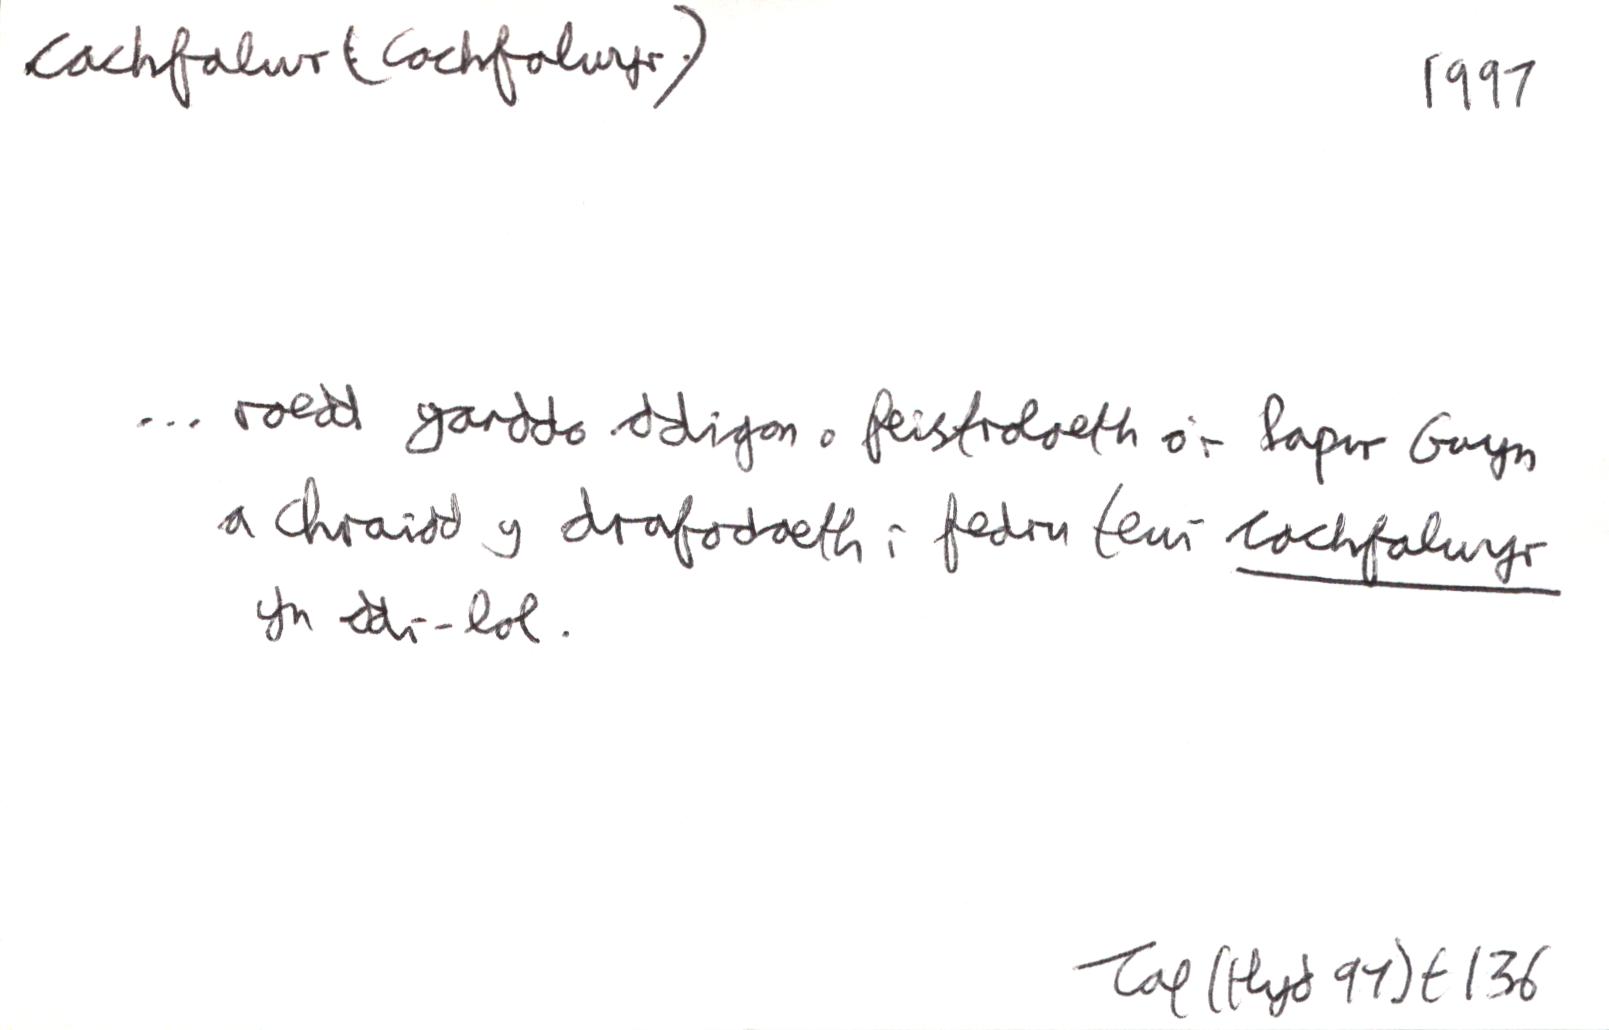 cachfalwr (cachfalwyr) 1997
... roedd ganddo ddigon o feistrolaeth o'r Papur Gwyn
a chraidd y drafodaeth i fedru tewi cachfalwyr
yn ddi-lol.
(Hyd 97) t 136